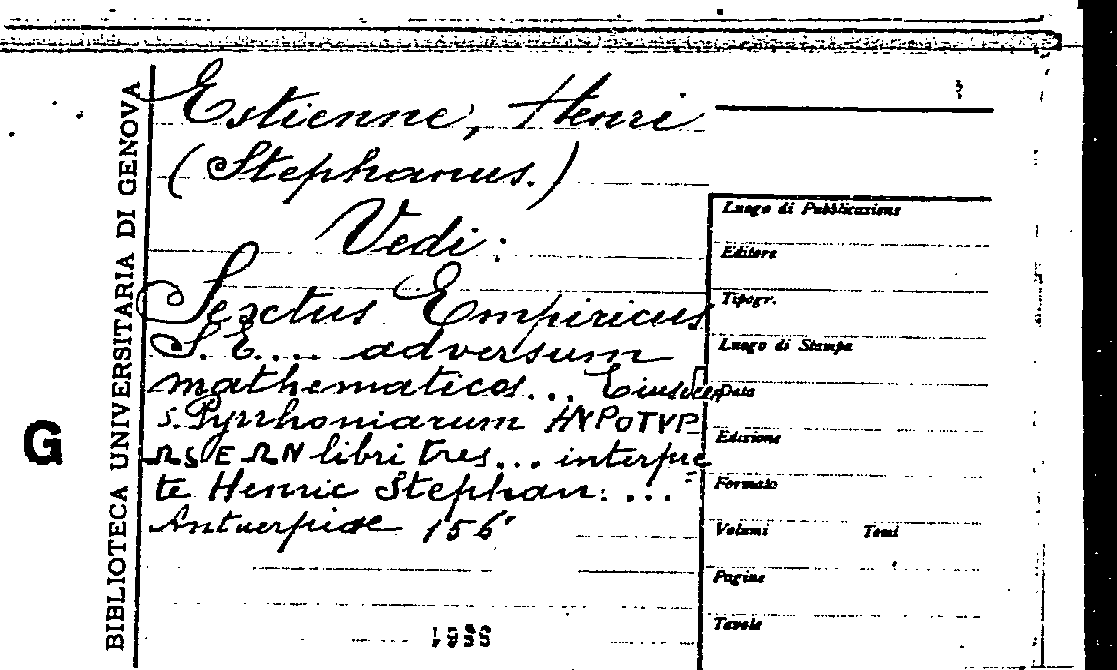 BIBLIOTECA UNIVERSITARIA DI GENOVA
G
Estienne, Henri
(Stephanus.)
Vedi:
Sextus Empiricus
S. E.... adversum
mathematicos... Eiusdem
s. Pyrrhoniarum HYPOTYP
ΩSEΩN libri tres... interpre=
te Henric Stephan: ...
Antuerpiae 156
1955
Luogo di Pubblicazione
Editore
Tipogr.
Luogo di Stampa
Data
Edizione
Formato
Volumi Tomi
Pagine
Tavole